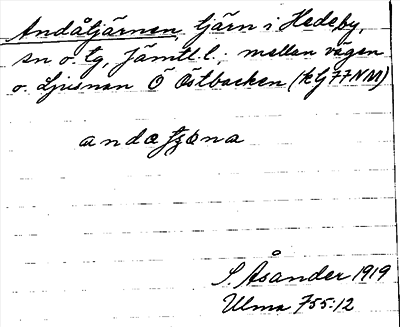 Andåtjärnen, tjärn i Hedeby,
sn o. tg, Jämtl. l.; mellan vägen
o. Ljusnan Ö Ostbacken (kbj 77 NM)
S. Åsander 1919
Ulma 755:12